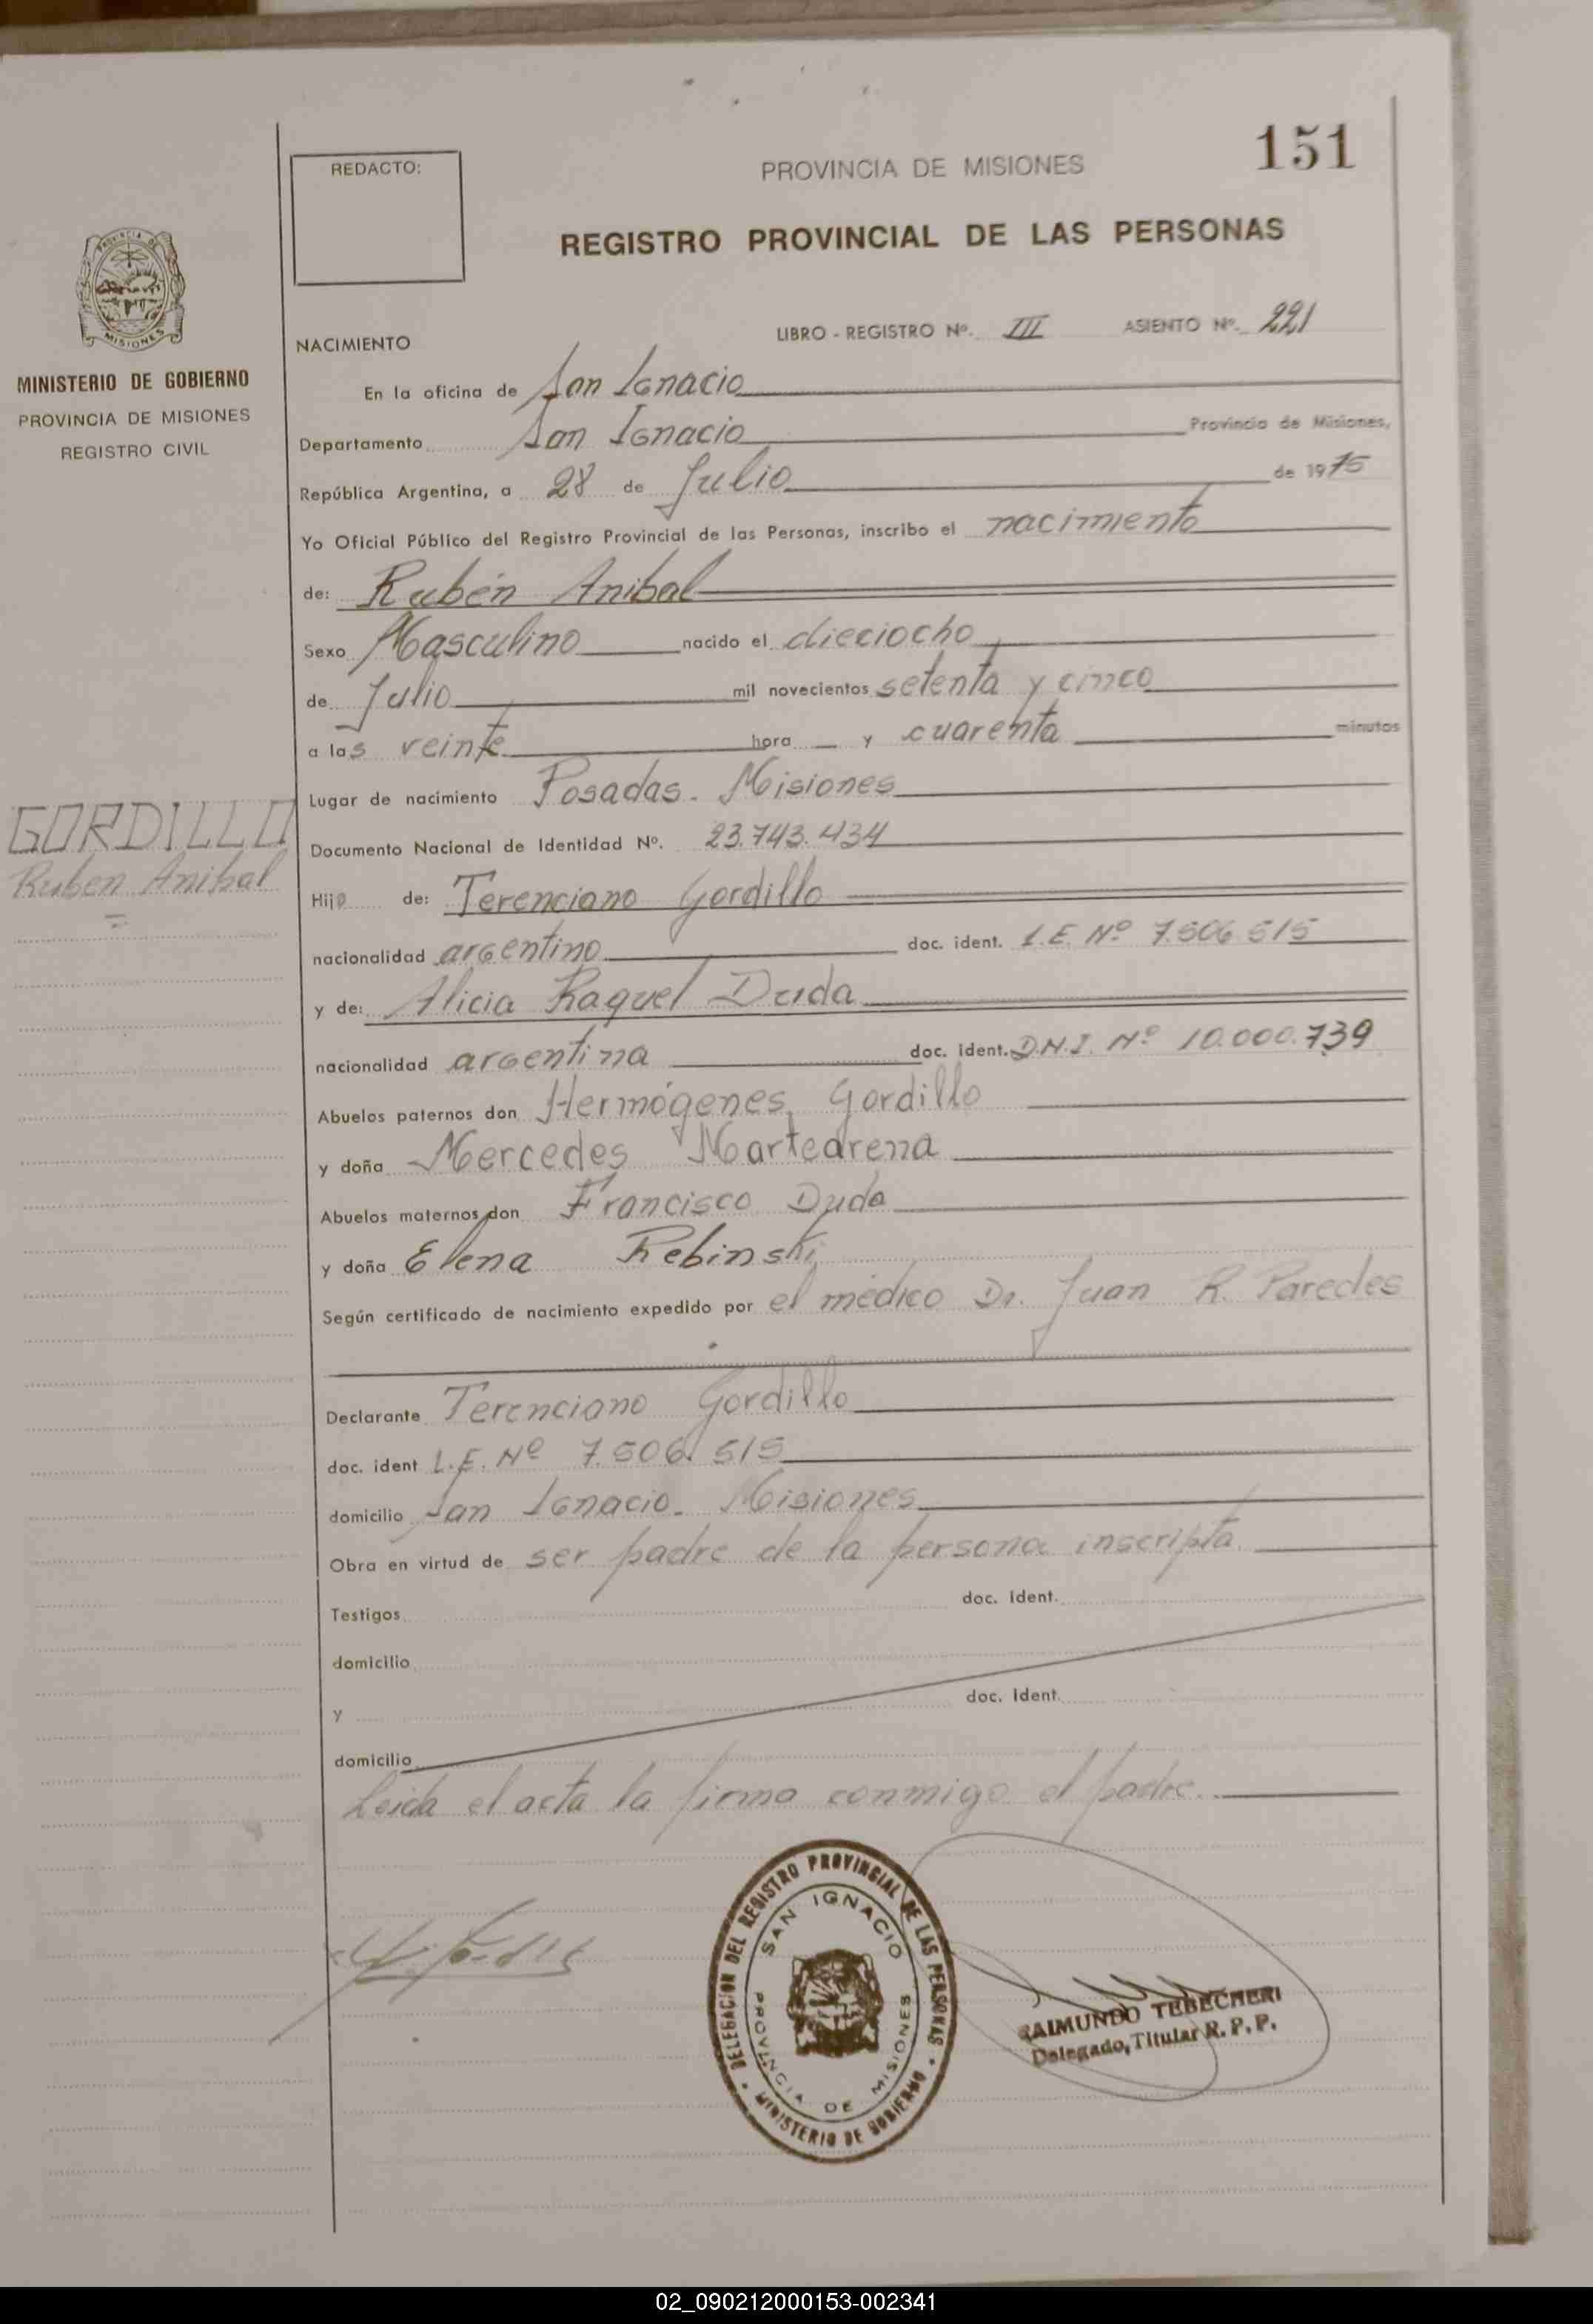 151
REDACTO:
PROVINCIA DE MISIONES
REGISTRO PROVINCIAL DE LAS PERSONAS
PROVINCIA DE
MISIONES
MINISTERIO DE GOBIERNO
PROVINCIA DE MISIONES
REGISTRO CIVIL
LIBRO - REGISTRO Nº. III ASIENTO Nº. 221
NACIMIENTO
En la oficina de San Ignacio
Departamento San Ignacio Provincia de Misiones,
República Argentina, a 28 de Julio de 1975
Yo Oficial Público del Registro Provincial de las Personas, inscribo el nacimiento
de: Rubén Anibal
Sexo Masculino nacido el dieciocho
de Julio mil novecientos setenta y cinco
a las veinte hora y cuarenta minutos
Lugar de nacimiento Posadas - Misiones
GORDILLO
Ruben Anibal
Documento Nacional de Identidad Nº. 23.743.434
Hijo de: Terenciano Gordillo
nacionalidad argentino doc. ident. L.E. Nº 7.506.515
y de: Alicia Raquel Duda
nacionalidad argentina doc. ident. D.N.I. Nº 10.000.739
Abuelos paternos don Hermógenes Gordillo
y doña Mercedes Martearena
Abuelos maternos don Francisco Duda
y doña Elena Rebinski
Según certificado de nacimiento expedido por el médico Dr. Juan R. Paredes
Declarante Terenciano Gordillo
doc. ident L.E. Nº 7.506.515
domicilio San Ignacio - Misiones
Obra en virtud de ser padre de la persona inscripta
Testigos doc. Ident.
domicilio
y doc. Ident.
domicilio
Leida el acta la firma conmigo el padre.
DELEGACION DEL REGISTRO PROVINCIAL DE LAS PERSONAS
MINISTERIO DE GOBIERNO
SAN IGNACIO
PROVINCIA DE MISIONES
RAIMUNDO TEBECHERI
Delegado, Titular R. P. P.
02_090212000153-002341